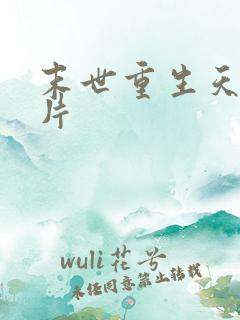 末世重生天
片
wuli花兮
未经同意禁止转载